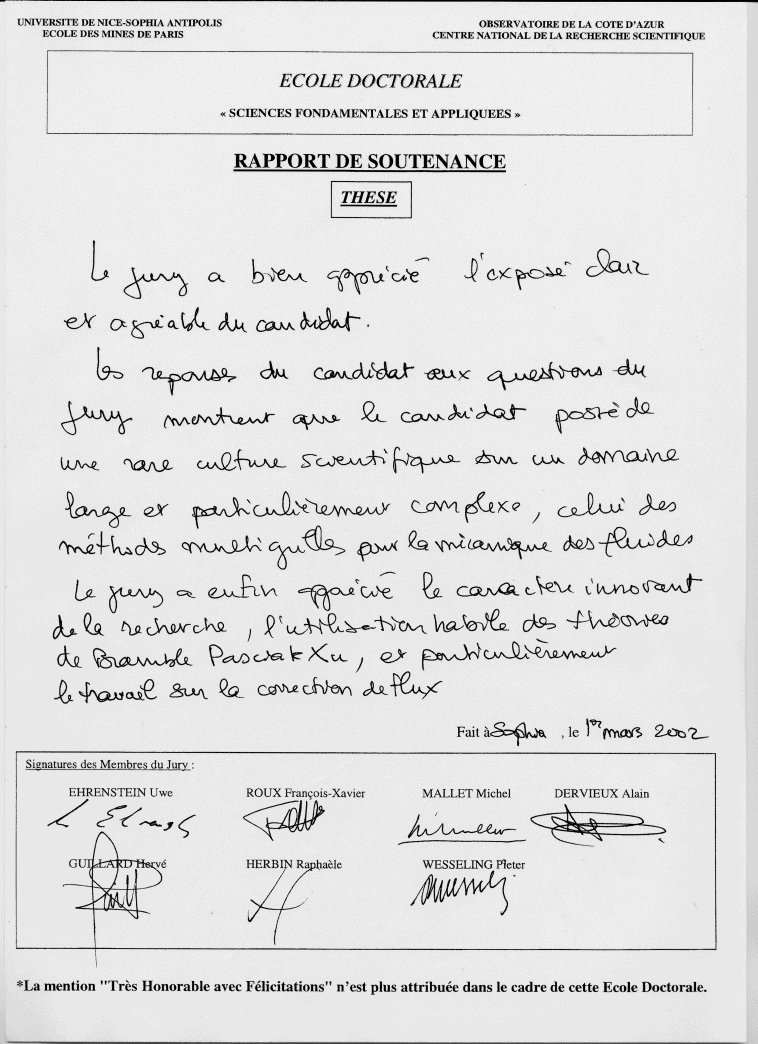 UNIVERSITE DE NICE-SOPHIA ANTIPOLIS
ECOLE DES MINES DE PARIS
OBSERVATOIRE DE LA COTE D'AZUR
CENTRE NATIONAL DE LA RECHERCHE SCIENTIFIQUE
ECOLE DOCTORALE
« SCIENCES FONDAMENTALES ET APPLIQUEES »
RAPPORT DE SOUTENANCE
THESE
Le jury a bien apprécié l'exposé clair
et agréable du candidat.
Les reponses du candidat aux questions du
Jury montrent que le candidat possède
une rare culture scientifique sur un domaine
large et particulièrement complexe, celui des
méthodes multigrilles pour la mécanique des fluides
Le jury a enfin apprécié le caractère innovant
de la recherche, l'utilisation habile des théories
de Bramble Pasciak Xu, et particulièrement
le travail sur la correction de flux
Fait à Sophia, le 1er mars 2002
Signatures des Membres du Jury :
EHRENSTEIN Uwe ROUX François-Xavier MALLET Michel DERVIEUX Alain
GUILLARD Hervé HERBIN Raphaèle WESSELING Pieter
*La mention "Très Honorable avec Félicitations" n'est plus attribuée dans le cadre de cette Ecole Doctorale.